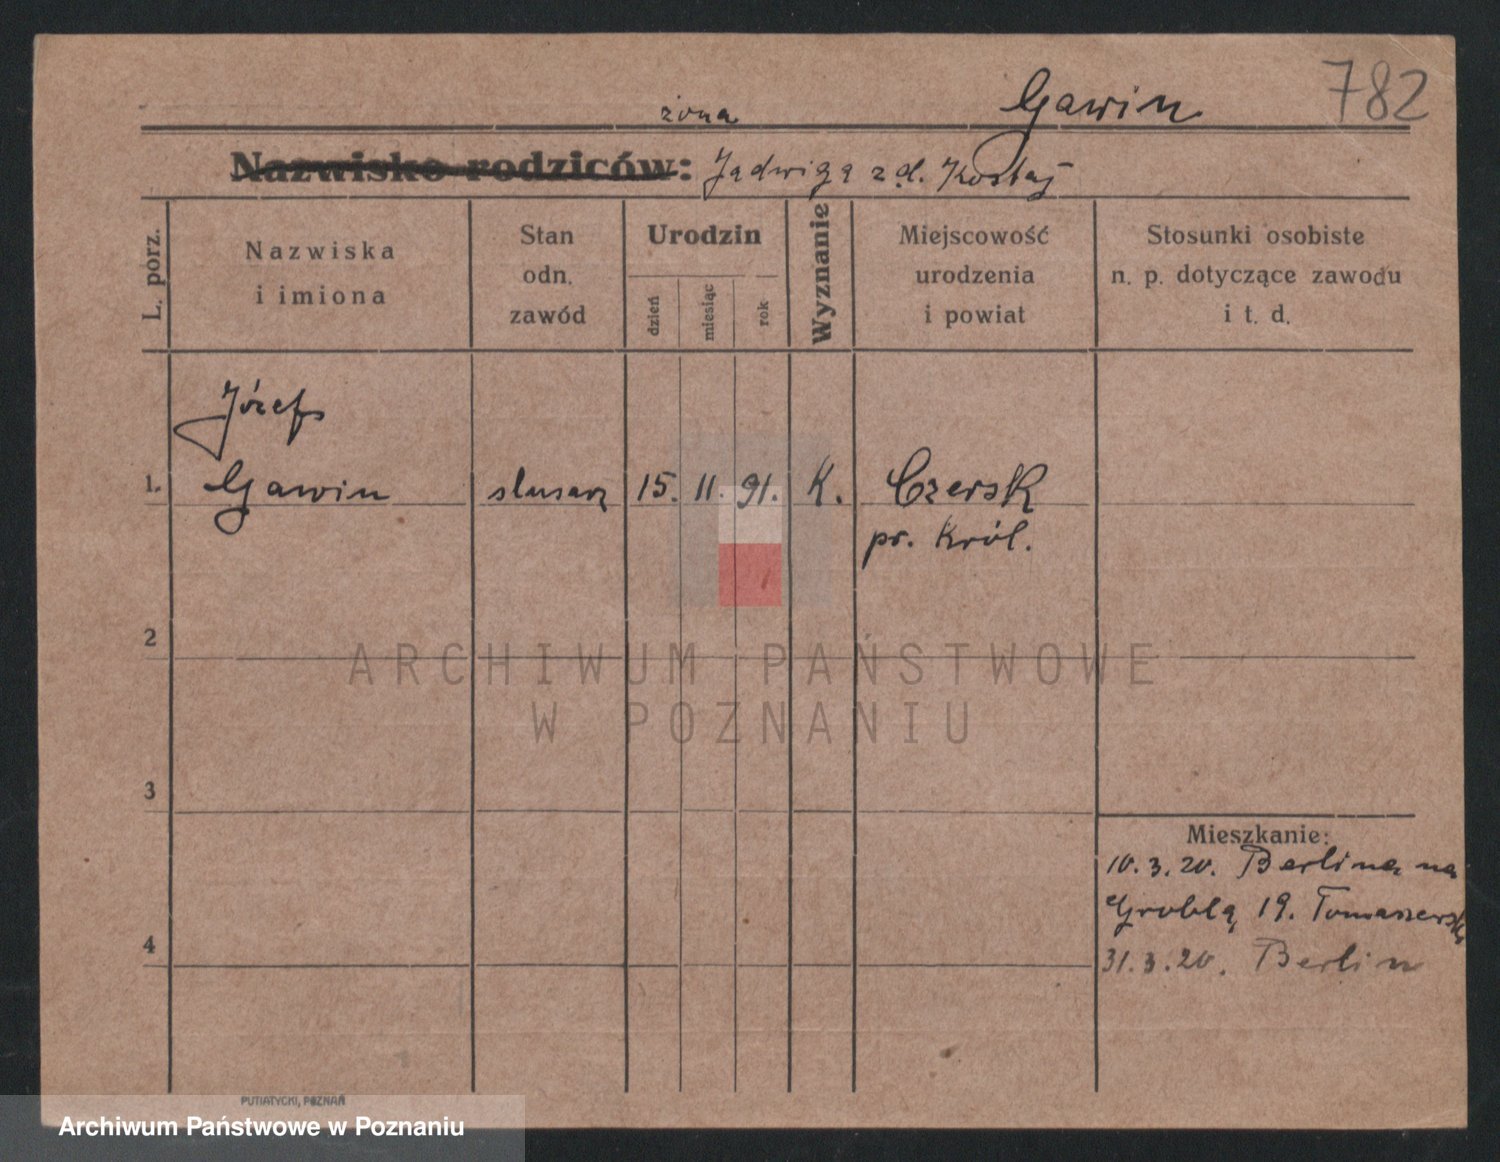 782
Gawin
żona
Nazwisko rodziców: Jadwiga z d. Kostaj
L. porz.
Nazwiska
i imiona
Stan
odn.
zawód
Urodzin
dzień
miesiąc
rok
Wyznanie
Miejscowość
urodzenia
i powiat
Stosunki osobiste
n. p. dotyczące zawodu
i t. d.
Józef
1. Gawin slusarz 15. 11. 91. K. Czersk
pr. Król.
2
ARCHIWUM PAŃSTWOWE
W POZNANIU
3
Mieszkanie:
10.3.20. Berlina na
Groblą 19. Tomaszewski
4
31.3.20. Berlin
PUTIATYCKI, POZNAŃ
Archiwum Państwowe w Poznaniu